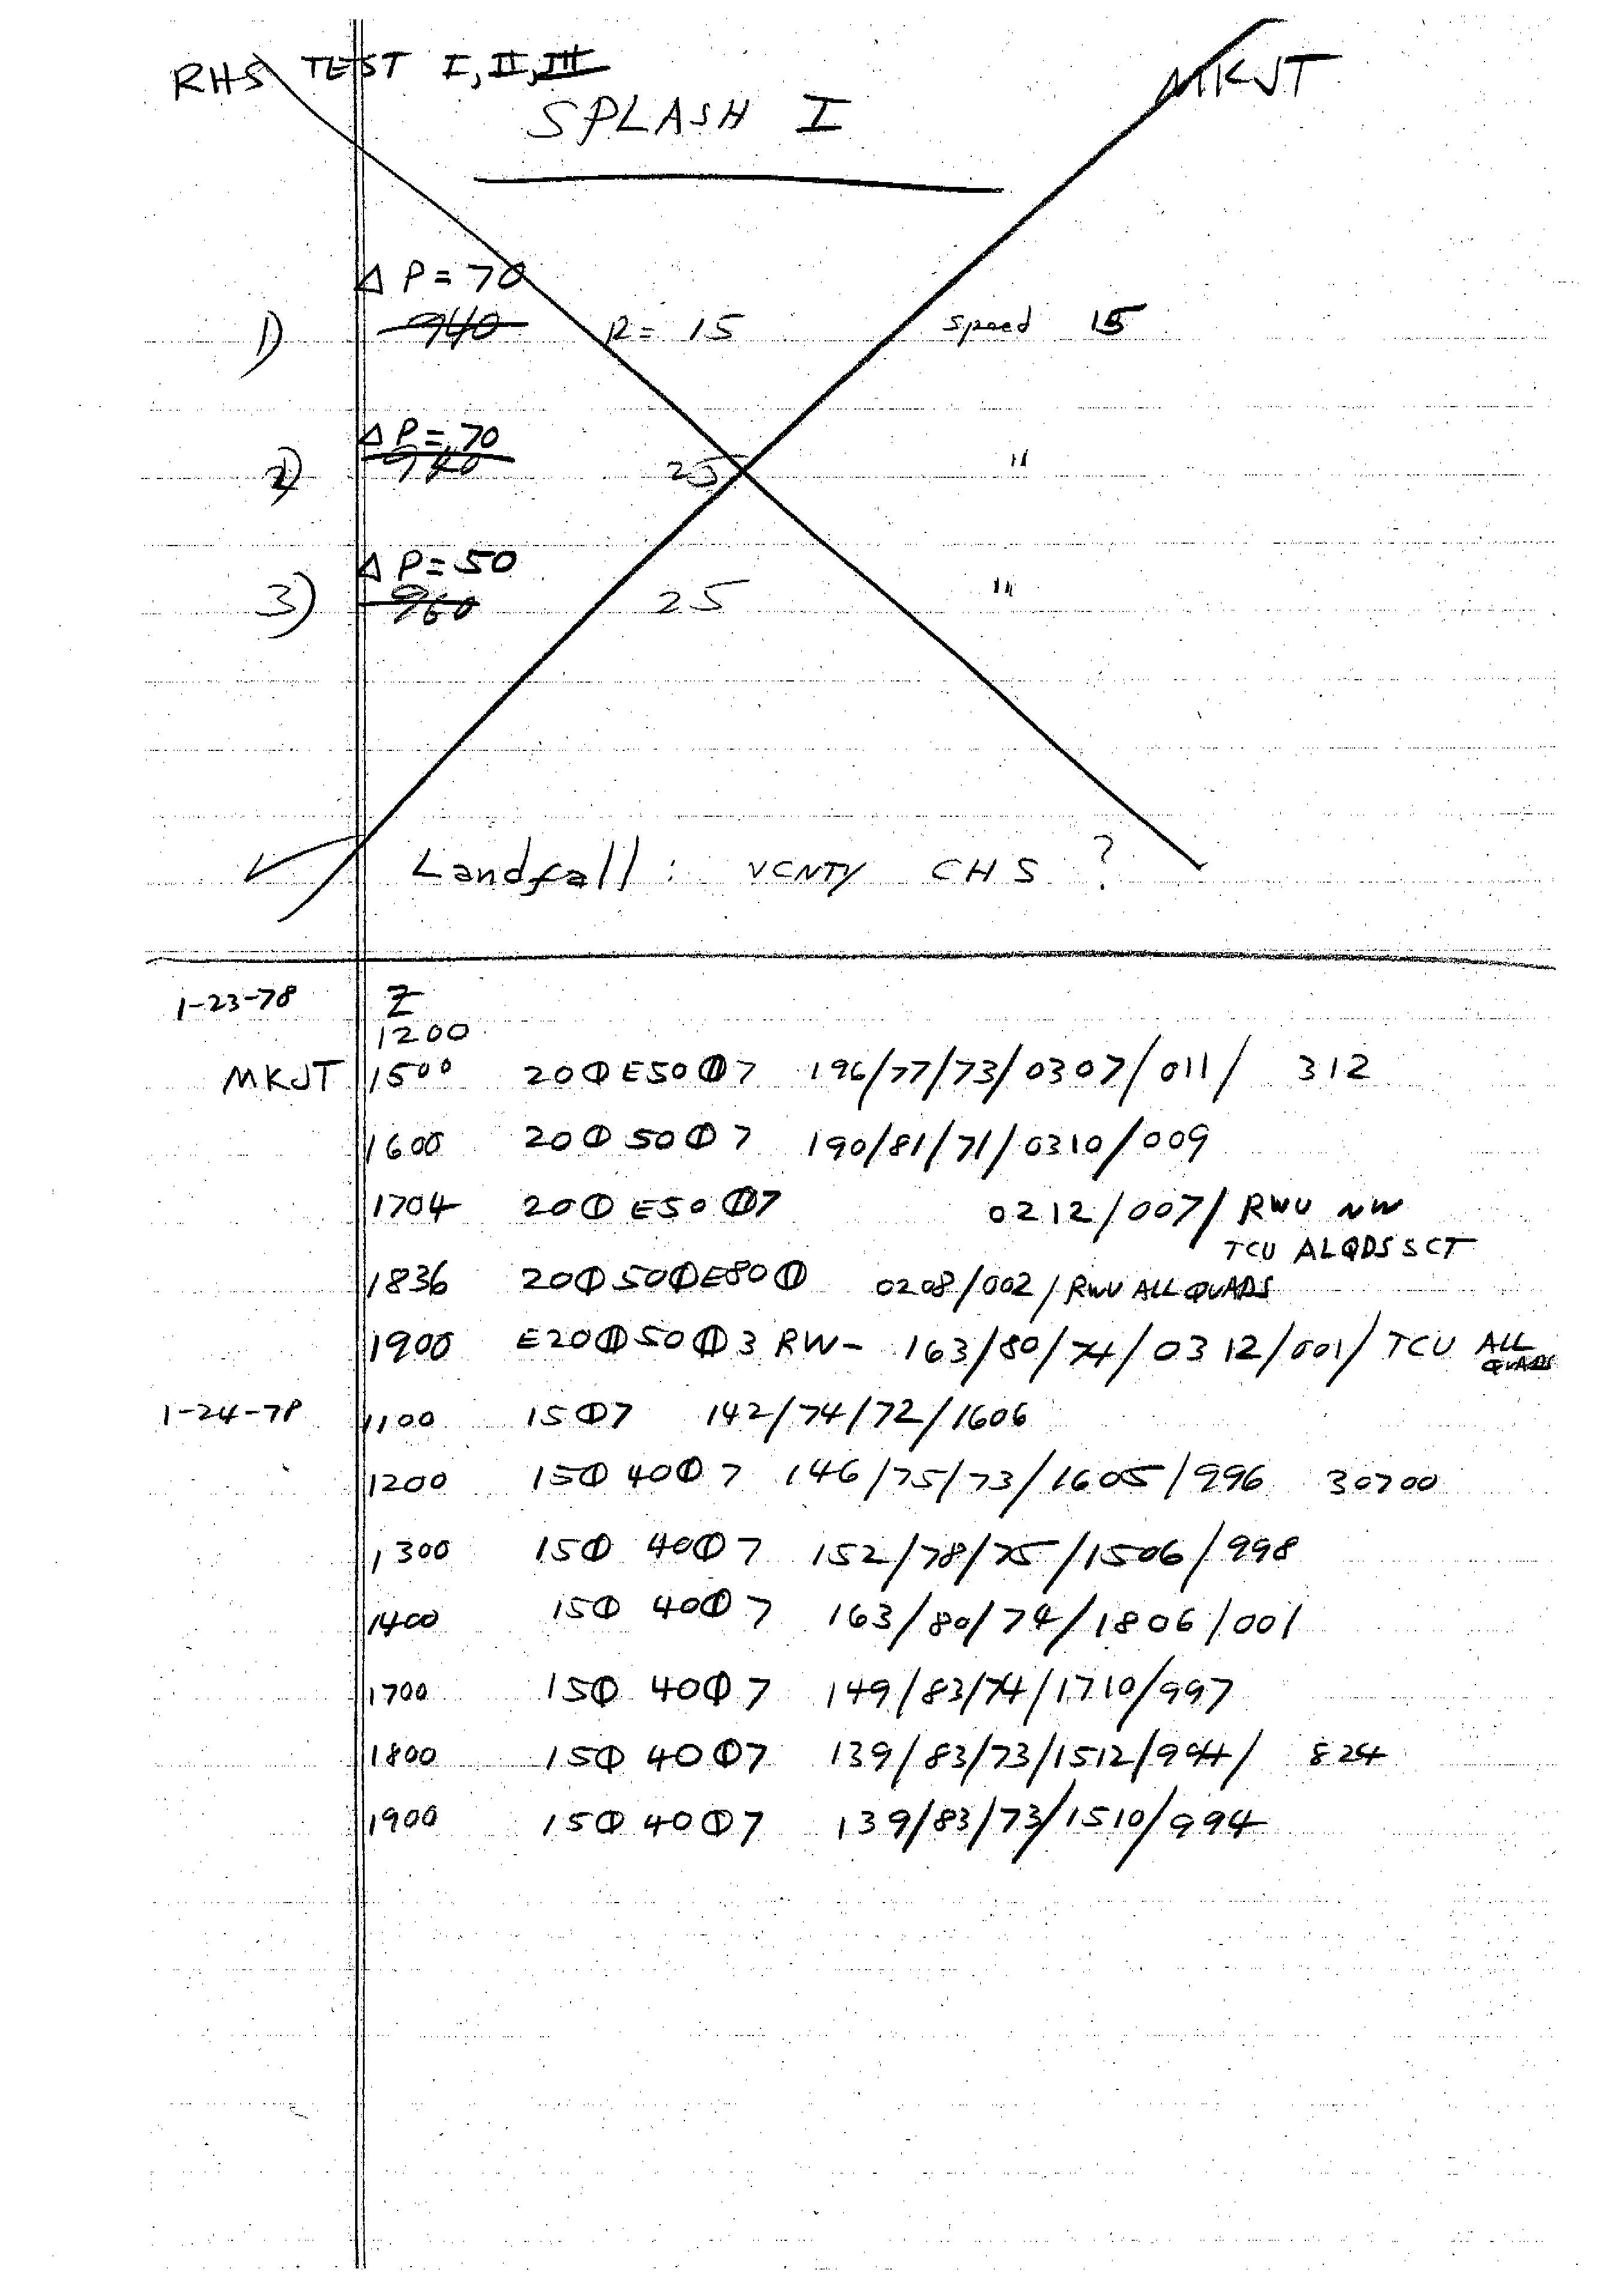 RHS TEST I, II, III MKJT
SPLASH I
Δ P = 70
1) 940 R = 15 speed 15
Δ P = 70
2) 940 25 "
Δ P = 50
3) 960 25 "
Landfall : VCNTY CHS ?
1-23-78 Z
1200
MKJT 1500 20⦶ E50⦷7 196/77/73/0307/011/ 312
1600 20⦶ 50⦶ 7 190/81/71/0310/009
1704 20⦶ E50⦷7 0212/007/ RWU NW
TCU ALQDS SCT
1836 20⦶ 50⦶E80⦷ 0208/002/ RWU ALL QUADS
1900 E20⦷50⦷3 RW- 163/80/74/0312/001/ TCU ALL
QUADS
1-24-78 1100 15⦶7 142/74/72/1606
1200 15⦶ 40⦶ 7 146/75/73/1605/996 30700
1300 15⦶ 40⦶ 7 152/78/75/1506/998
1400 15⦶ 40⦶ 7 163/80/74/1806/001
1700 15⦶ 40⦶ 7 149/83/74/1710/997
1800 15⦶ 40⦶7 139/83/73/1512/994/ 824
1900 15⦶ 40⦶7 139/83/73/1510/994